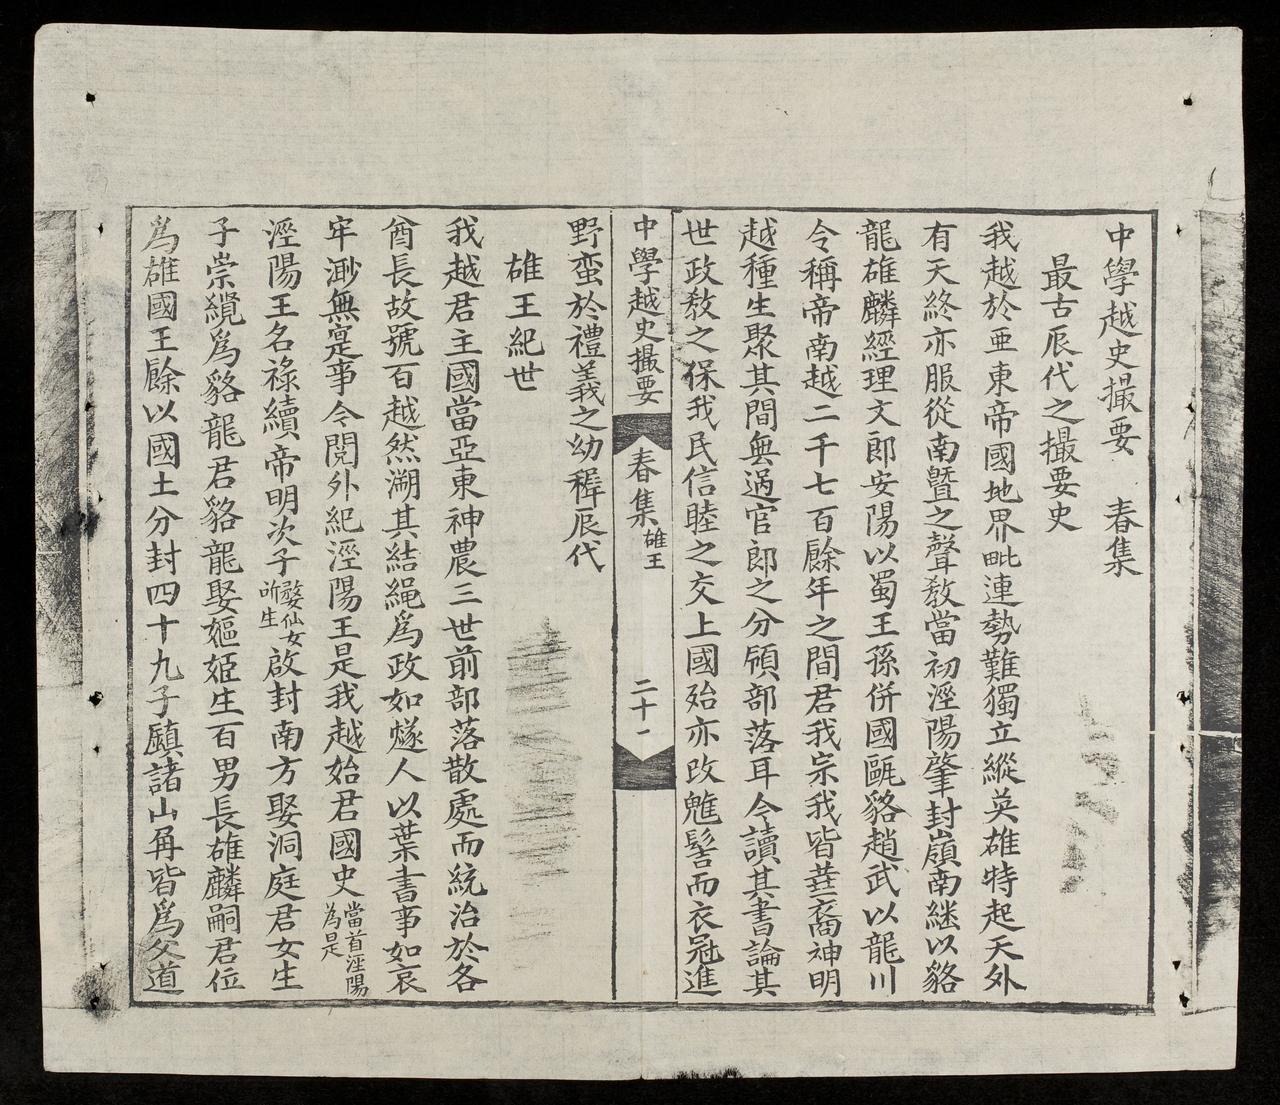 中學越史撮要　春集
最古辰代之撮要史
我越於亜東帝國地界毗連勢難獨立縱英雄特起天外
有天終亦服從南曁之聲敎當初涇陽肇封嶺南継以貉
龍雄麟經理文郎安陽以蜀王孫併國甌貉趙武以龍川
令稱帝南越二千七百餘年之間君我宗我皆𦯬裔神明
越種生聚其間無過官郎之分頒部落耳今讀其書論其
世政敎之保我民信睦之交上國殆亦改魋髻而衣冠進
中學越史撮要　春集　雄王　二十一
野蛮於禮義之幼穉辰代
雄王紀世
我越君主國當亞東神農三世前部落散處而統治於各
酋長故號百越然溯其結繩爲政如燧人以葉書事如哀
牢渺無寔事今閲外紀涇陽王是我越始君國史當首涇陽為是
涇陽王名祿續帝明次子婺仙女所生啟封南方娶洞庭君女生
子崇纜爲貉龍君貉龍娶嫗姬生百男長雄麟嗣君位
爲雄國王餘以國土分封四十九子鎮諸山再皆爲父道